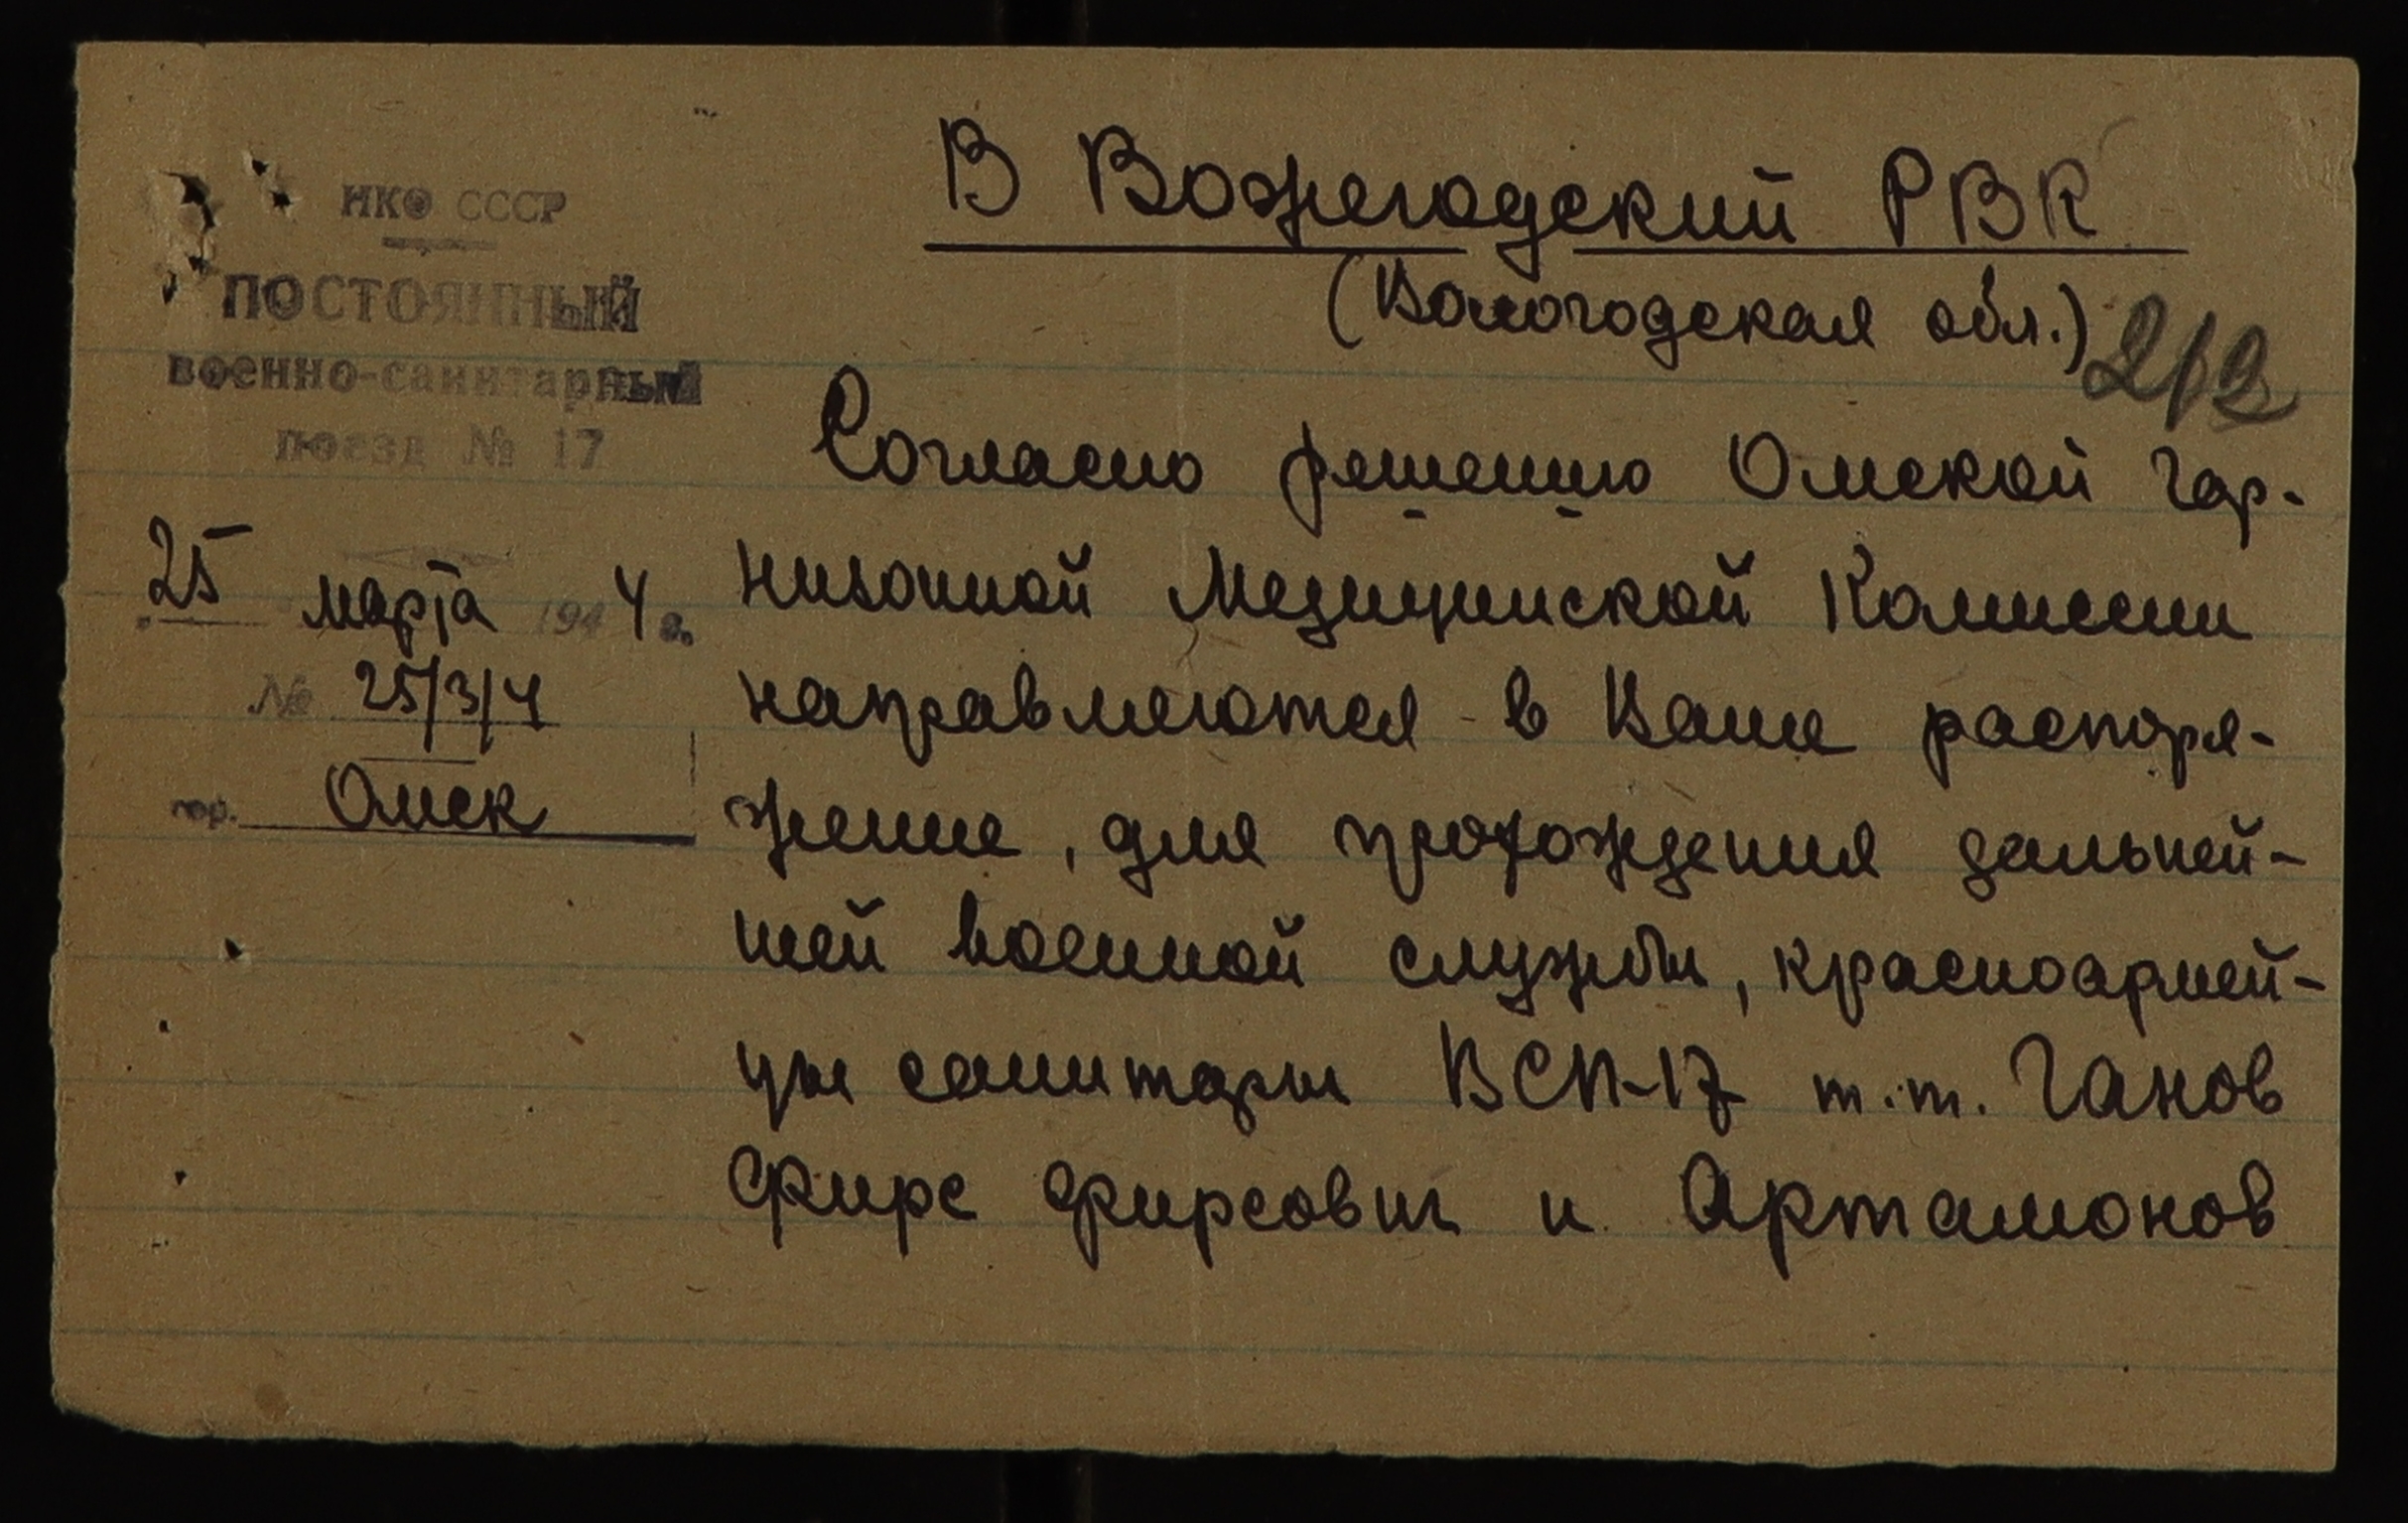 НКО СССР
ПОСТОЯННЫЙ
военно-санитарный
поезд № 17
25 марта 1944 г.
№ 25/3/4
гор. Омск
В Вожегодский РВК
(Вологодская обл.)
212
Согласно решению Омской Гар-
низонной Медицинской Комиссии
направляются в Ваше распоря-
жение, для прохождения дальней-
шей военной службы, красноармей-
цы санитары ВСП-17 т.т. Ганов
Фирс Фирсович и Артамонов